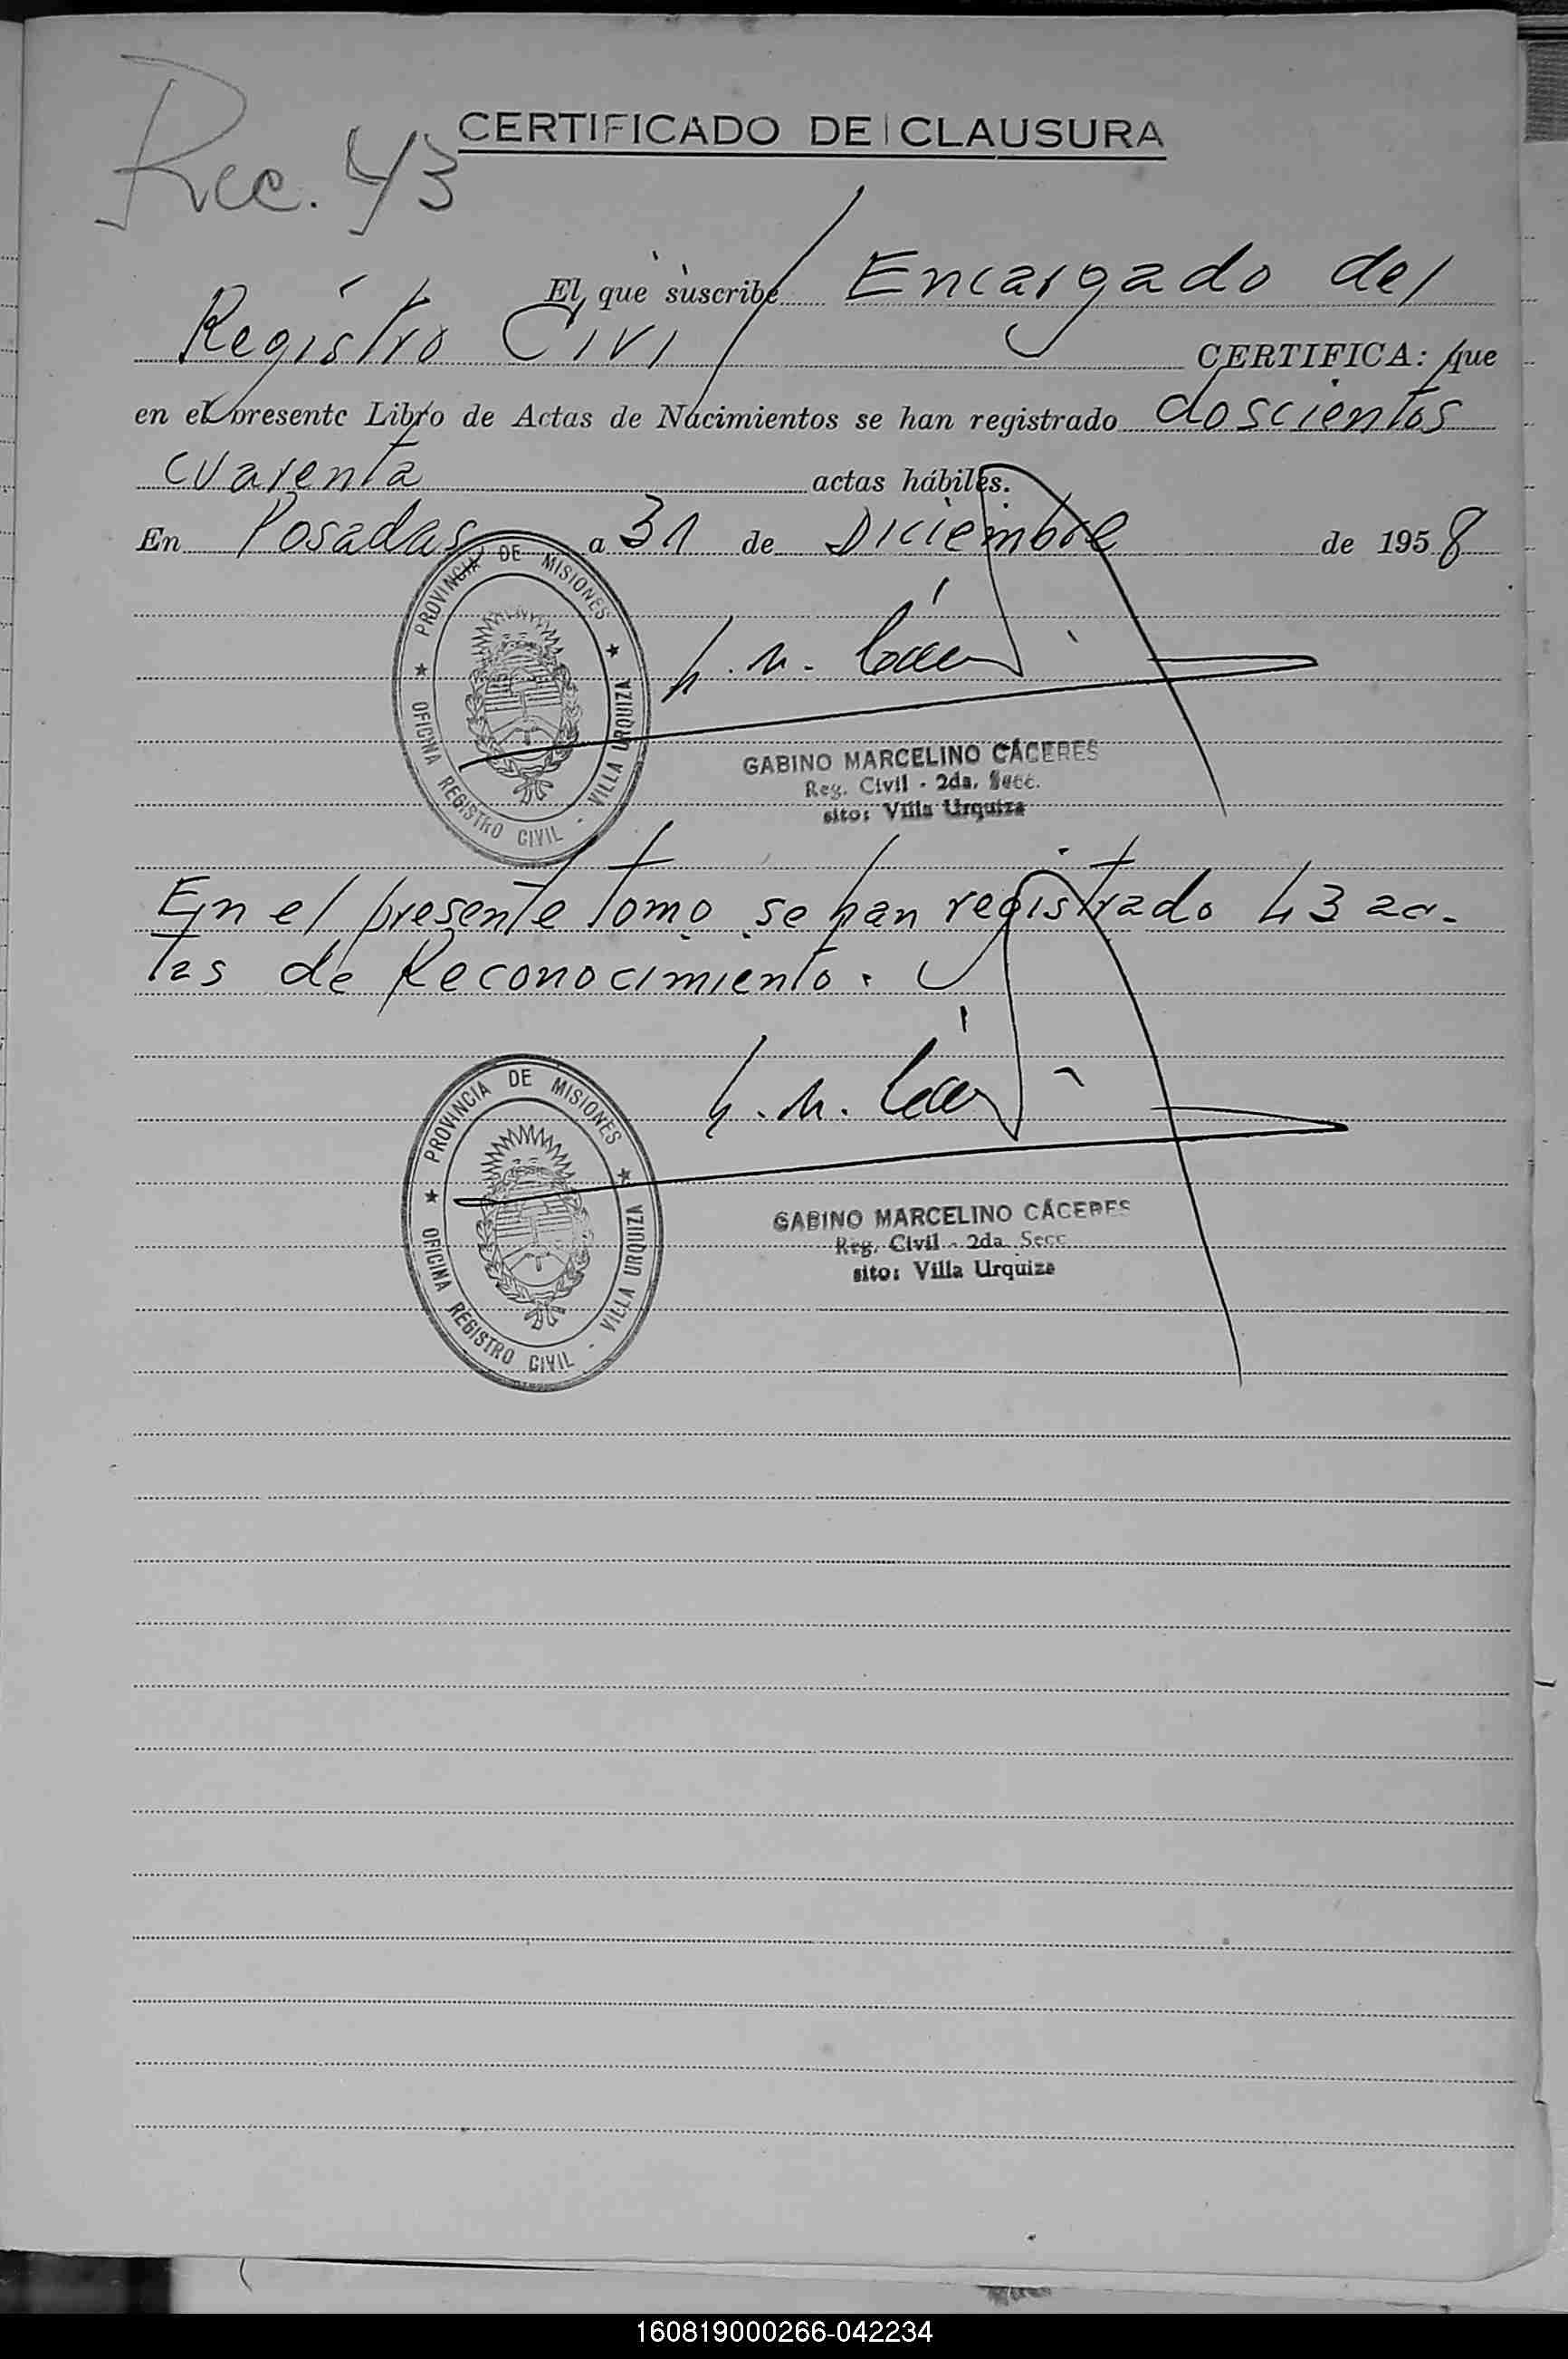 CERTIFICADO DE CLAUSURA
Rec. 43
El que suscribe Encargado del
Registro Civil CERTIFICA: que
en el presente Libro de Actas de Nacimientos se han registrado doscientos
cuarenta actas hábiles.
En Posadas a 31 de Diciembre de 1958
PROVINCIA DE MISIONES
OFICINA REGISTRO CIVIL - VILLA URQUIZA
GABINO MARCELINO CÁCERES
Reg. Civil - 2da. Secc.
sito: Villa Urquiza
En el presente tomo se han registrado 43 ac-
tas de Reconocimiento.
PROVINCIA DE MISIONES
OFICINA REGISTRO CIVIL - VILLA URQUIZA
GABINO MARCELINO CÁCERES
Reg. Civil - 2da. Secc
sito: Villa Urquiza
160819000266-042234